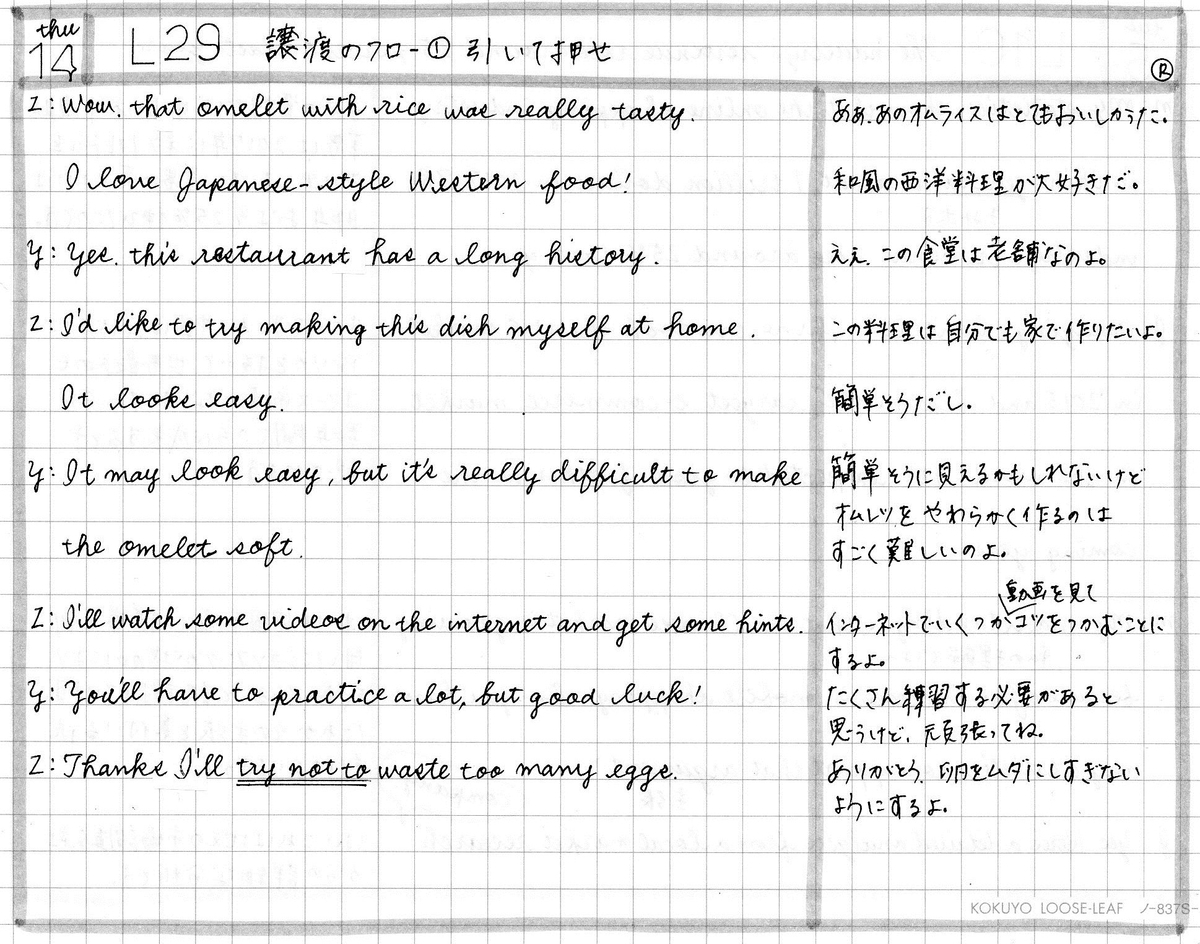 thu
14
L29 譲渡のフロー① 引いて押せ
Ⓡ
Z: Wow. that omelet with rice was really tasty.
ああ、あのオムライスはとてもおいしかった。
I love Japanese-style Western food!
和風の西洋料理が大好きだ。
Y: Yes. this restaurant has a long history.
ええ、この食堂は老舗なのよ。
Z: I'd like to try making this dish myself at home.
この料理は自分でも家で作りたいよ。
It looks easy.
簡単そうだし。
Y: It may look easy, but it's really difficult to make
簡単そうに見えるかもしれないけど
オムレツをやわらかく作るのは
the omelet soft.
すごく難しいのよ。
動画を見て
Z: I'll watch some videos on the internet and get some hints.
インターネットでいくつかコツをつかむことに
するよ。
Y: You'll have to practice a lot, but good luck!
たくさん練習する必要があると
思うけど、頑張ってね。
Z: Thanks I'll try not to waste too many eggs.
ありがとう、卵をムダにしすぎない
ようにするよ。
KOKUYO LOOSE-LEAF ノ-837S-